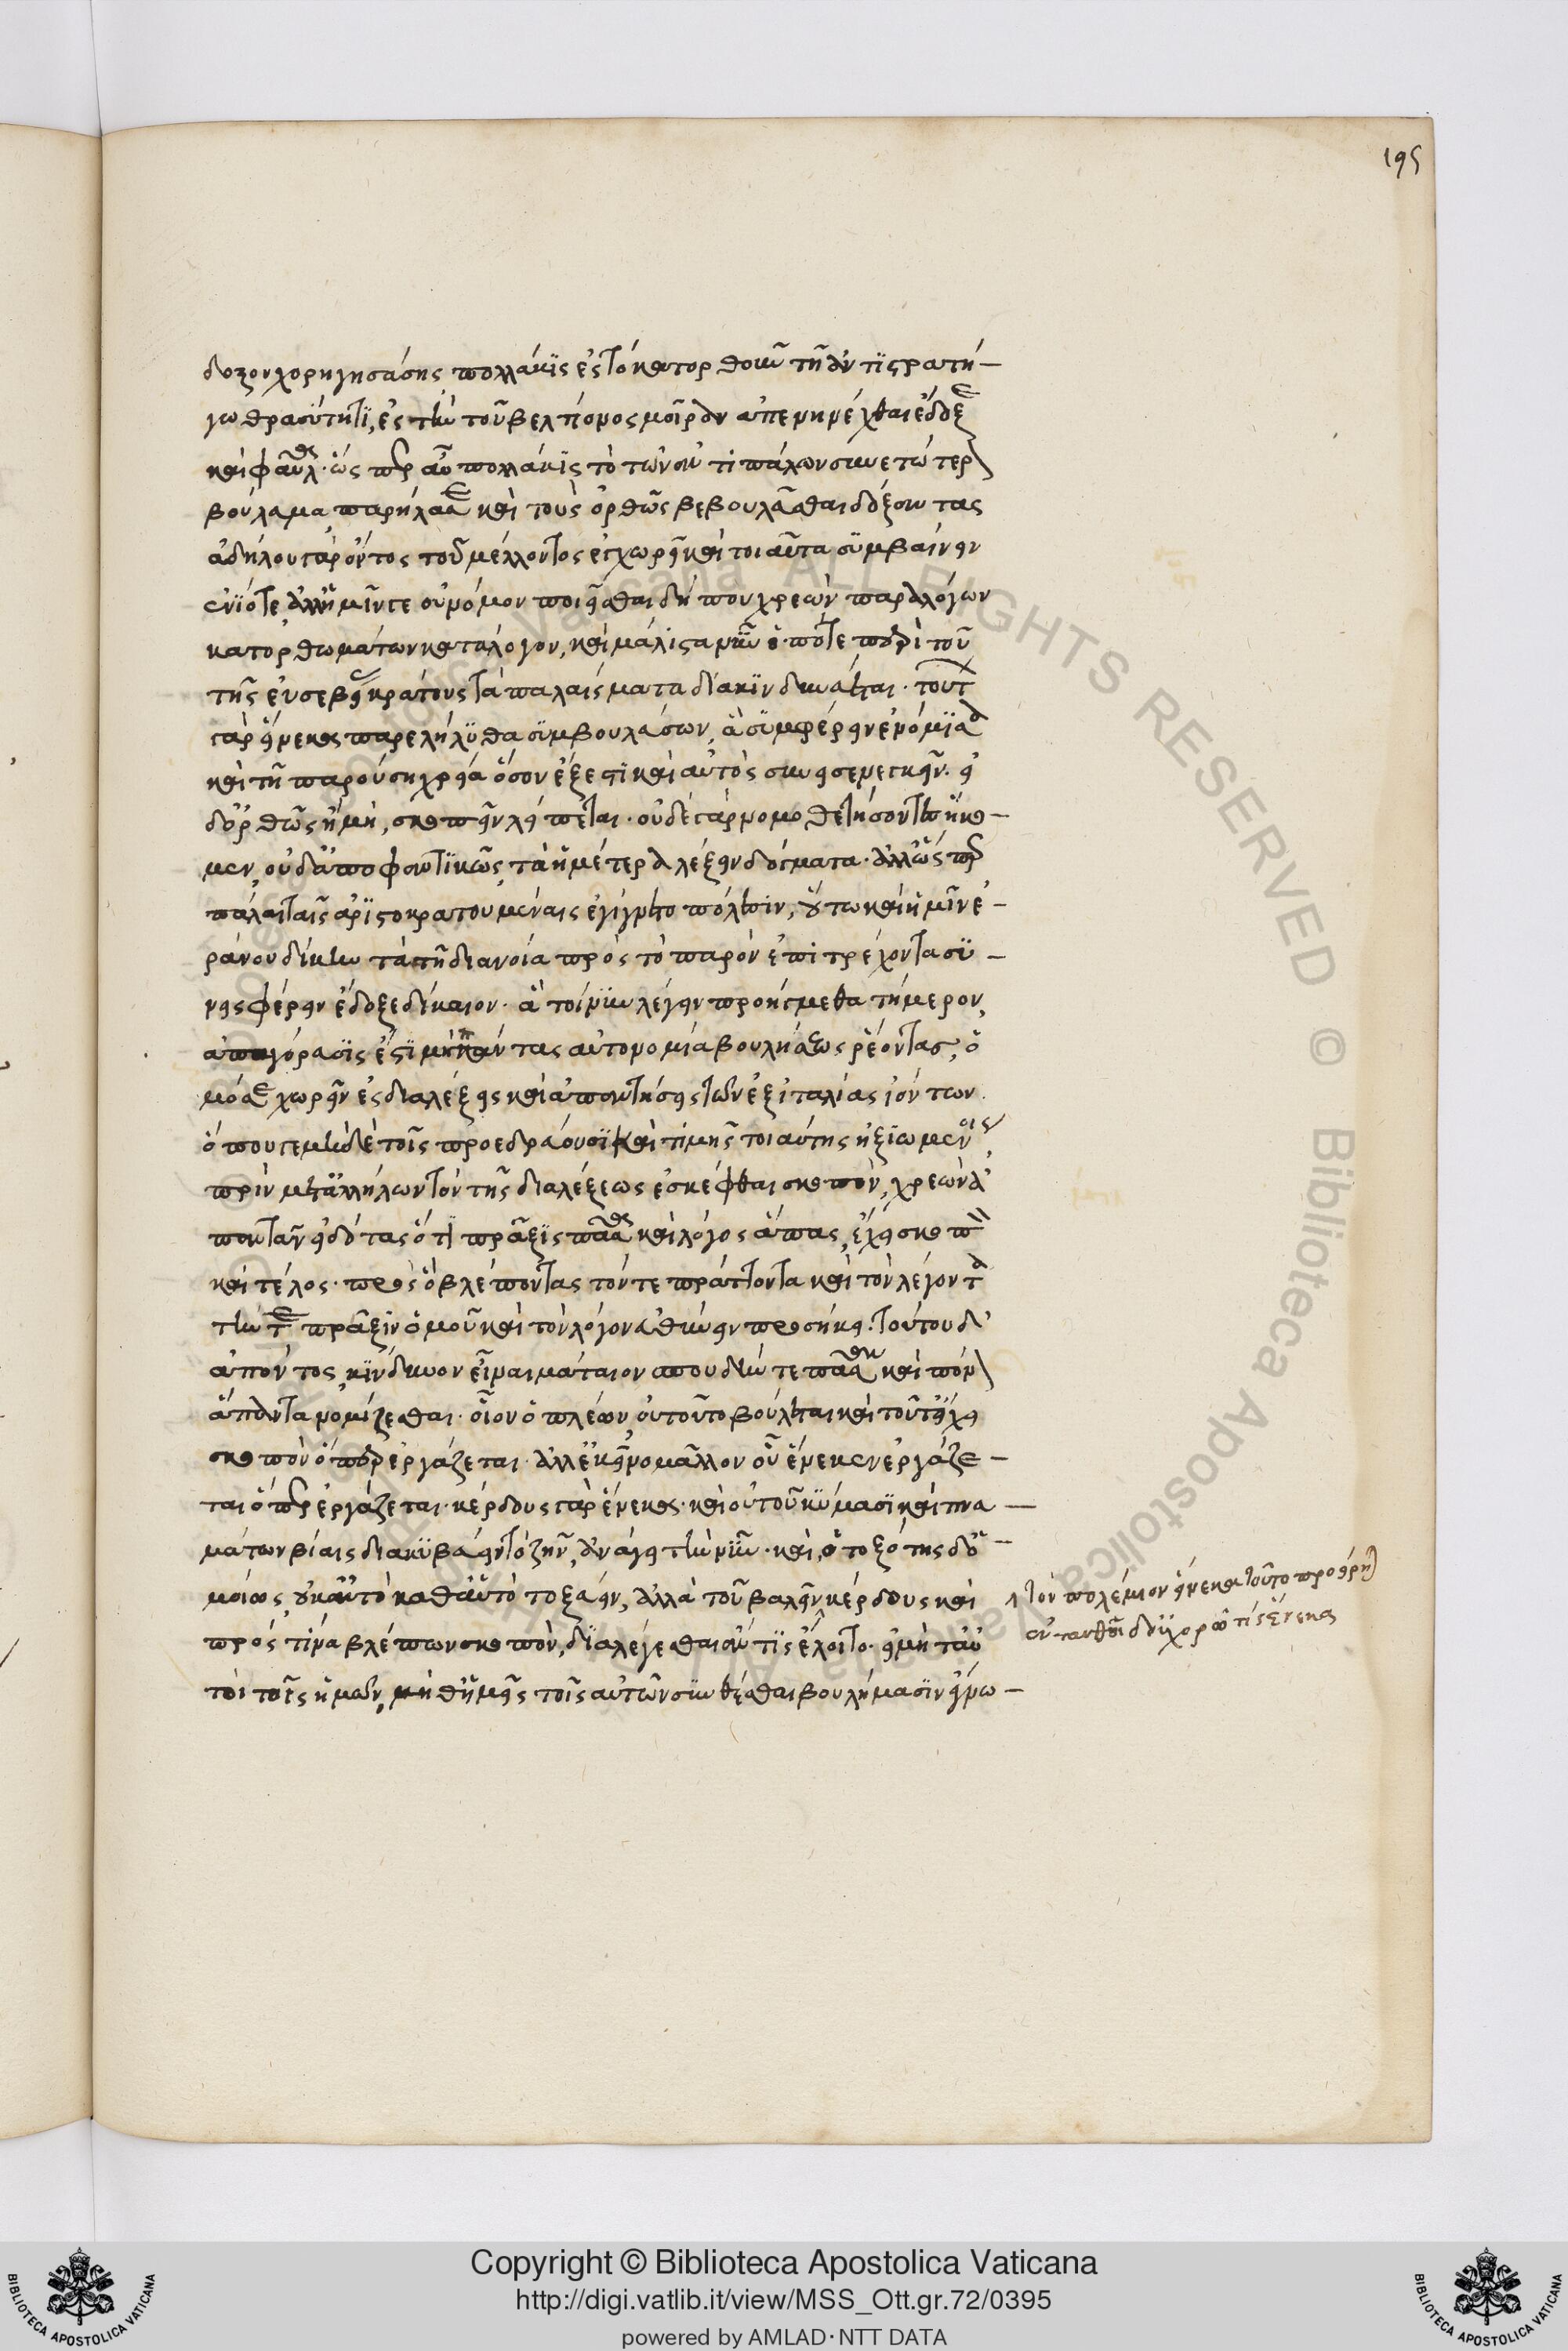 195
δοξον χορηγησάσης πολλάκις ἐς τὸ κατορθοῦν τῇ ἀντιστρατή-
γω θρασύτητι, ἐς τὴν τοῦ βελτίονος μοῖραν ἀπενηνέχθαι ἔδοξε
καὶ φαῦλος· ὥς περ αὖ πολλάκις τὸ τῶν
βούλευμα παρήλασε καὶ τοὺς ὀρθῶς βεβουλεῦσθαι δόξαντας
ἀδήλου γὰρ ὄντος τοῦ μέλλοντος ἐγχωρεῖ καὶ τοιαῦτα συμβαίνειν
ἐνίοτε, ἀλλ' ἡμῖν γε οὐ μόνον ποιεῖσθαι δή που χρεὼν παραλόγων
κατορθωμάτων κατάλογον, καὶ μάλιστα νῦν ὁπότε περὶ τοῦ
τῆς εὐσεβείας κράτους τὰ παλαίσματα διακινδυνεύεται· τούτου
γὰρ εἵνεκα παρελήλυθα συμβουλεύσων, ἃ συμφέρειν ἐνόμισα
καὶ τῇ παρούσῃ χρείᾳ ὅσον ἔξεστι καὶ αὐτὸς συνεισενεγκεῖν· εἰ
δ' ὀρθῶς ἢ μή, σκοπεῖν λείπεται· οὐδὲ γὰρ νομοθετήσοντες ἥκο-
μεν, οὐδ' ἀποφαντικῶς τὰ ἡμέτερα λέξειν δόγματα· ἀλλ' ὥς περ
πάλαι ταῖς ἀριστοκρατουμέναις ἐγίγνετο πόλεσιν, οὕτω καὶ ἡμῖν ἐ-
ράνου δίκην τὰ τῇ διανοίᾳ πρὸς τὸ παρὸν ἐπιτρέχοντα συ-
νεισφέρειν ἔδοξε δίκαιον· ἃ τοίνυν λέγειν προηγμεθα τήμερον,
ἀπαγόρευσίς ἐστι μὴ πάντας αὐτονομίᾳ βουλήσεως ῥέοντας, ὁ
μόσε χωρεῖν ἐς διαλέξεις καὶ ἀπαντήσεις τῶν ἐξ ἰταλίας ἰόντων.
ὅπου γε μηδὲ τοῖς προεδρεύουσι καὶ τιμῆς τοιαύτης ἠξιωμένοις,
πρὶν μετ' ἀλλήλων τὸν τῆς διαλέξεως ἐσκέφθαι σκοπόν, χρεὼν ἀ-
παντᾶν εἰδότας ὅτι πρᾶξις πᾶσα καὶ λόγος ἅπας, ἔχει σκοπὸν
καὶ τέλος· πρὸς ὃ βλέποντας τόν τε πράττοντα καὶ τὸν λέγοντα
τήν τε πρᾶξιν ὁμοῦ καὶ τὸν λόγον εὐθύνειν προσήκει. τούτου δ'
ἀπόντος, κίνδυνον εἶναι μάταιον σπουδήν τε πᾶσαν καὶ πόνον
ἅπαντα νομίζεσθαι· οἷον ὁ πλέων, οὐ τοῦτο βούλεται καὶ τοῦτ' ἔχει
σκοπὸν ὅπερ ἐργάζεται· ἀλλ' ἐκεῖνο μᾶλλον οὗ ἕνεκεν ἐργάζε-
ται ὅπερ ἐργάζεται· κέρδους γὰρ ἕνεκα· καὶ οὐ τοῦ κύμασι καὶ πνευ-
μάτων βίαις διακυβεύειν τὸ ζῆν, ἀνάγει τὴν ναῦν· καὶ ὁ τοξότης δ' ὁ-
μοίως, οὐκ αὐτὸ καθ' αὑτὸ τοξεύειν, ἀλλὰ τοῦ βαλεῖν κέρδους καὶ
πρὸς τίνα βλέπων σκοπόν, διαλέγεσθαι ἄν τις ἕλοιτο· εἰ μὴ ταὐ
τοὶ τοῖς ἡμῶν, μήθ' ἡμεῖς τοῖς αὐτῶν συνθέσθαι βουλήμασιν ἐγνω-
τὸν πολέμιον εἵνεκα τοῦτο προαιρεῖ
ἐνταυθοῖ δ' οὐχ ὁρῶ τίς ἕνεκα
Copyright © Biblioteca Apostolica Vaticana
http://digi.vatlib.it/view/MSS_Ott.gr.72/0395
powered by AMLAD·NTT DATA